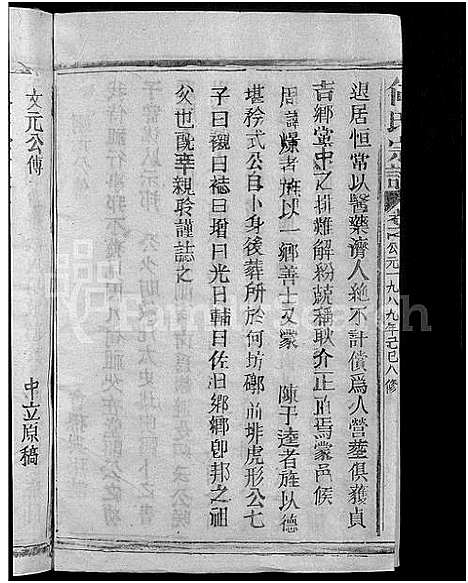 何氏宗譜 卷之 公元一九八九年己巳八修
退居恒常以醫藥濟人絶不計償爲人營塟俱獲貞
吉鄉黨中之排難解紛兢稱耿介正直焉蒙邑侯
周諱爌者旌以一鄉善士又蒙 陳于逵者旌以德
堪矜式公自卜身後葬所於何坊鄉前排虎形公七
子曰禎曰誌曰璔曰光曰輔曰佐曰鄉鄉卽邦之祖
父也旣幸親聆謹誌之
文元公傳
中立原稿